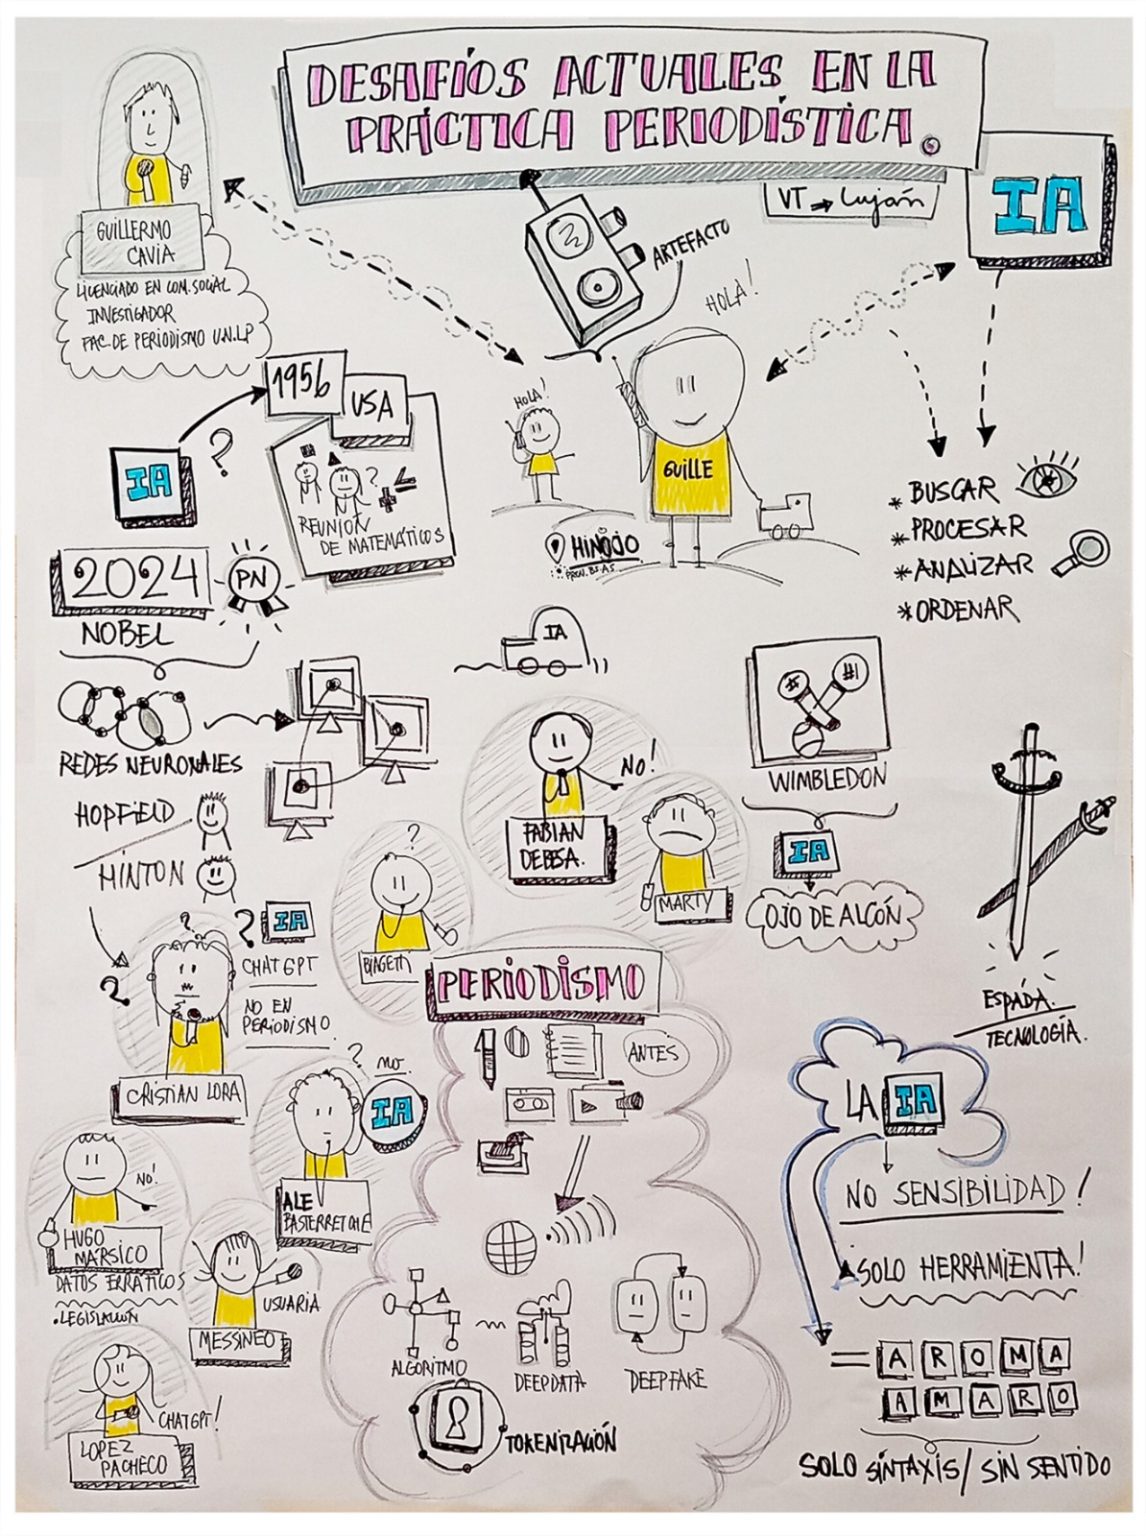 DESAFÍOS ACTUALES EN LA
PRÁCTICA PERIODÍSTICA.
IA
VT → Luján
GUILLERMO
CAVIA
LICENCIADO EN COM. SOCIAL
INVESTIGADOR
FAC. DE PERIODISMO U.N.LP
ARTEFACTO
HOLA!
HOLA!
GUILLE
HINOJO
PROV. BS. AS
1956
USA
IA
?
?
REUNIÓN
DE MATEMÁTICOS
* BUSCAR
* PROCESAR
* ANALIZAR
* ORDENAR
2024
PN
NOBEL
REDES NEURONALES
HOPFIELD
HINTON
IA
#1
WIMBLEDON
IA
OJO DE ALCÓN
NO!
FABIAN
DEBESA.
MARTY
?
BIAGETTI
ESPADA.
TECNOLOGÍA.
?
?
?
IA
CHAT GPT
NO EN
PERIODISMO
CRISTIAN LORA
?
NO
IA
ALE
BASTERRETCHE
NO!
HUGO
MÁRSICO
DATOS ERRÁTICOS
. LEGISLACIÓN
USUARIA
MESSINEO
CHATGPT!
LOPEZ
PACHECO
PERIODISMO
ANTES
ALGORITMO
DEEPDATA
DEEPFAKE
TOKENIZACIÓN
LA IA
NO SENSIBILIDAD!
SOLO HERRAMIENTA!
= AROMA
AMARO
SOLO SINTAXIS / SIN SENTIDO